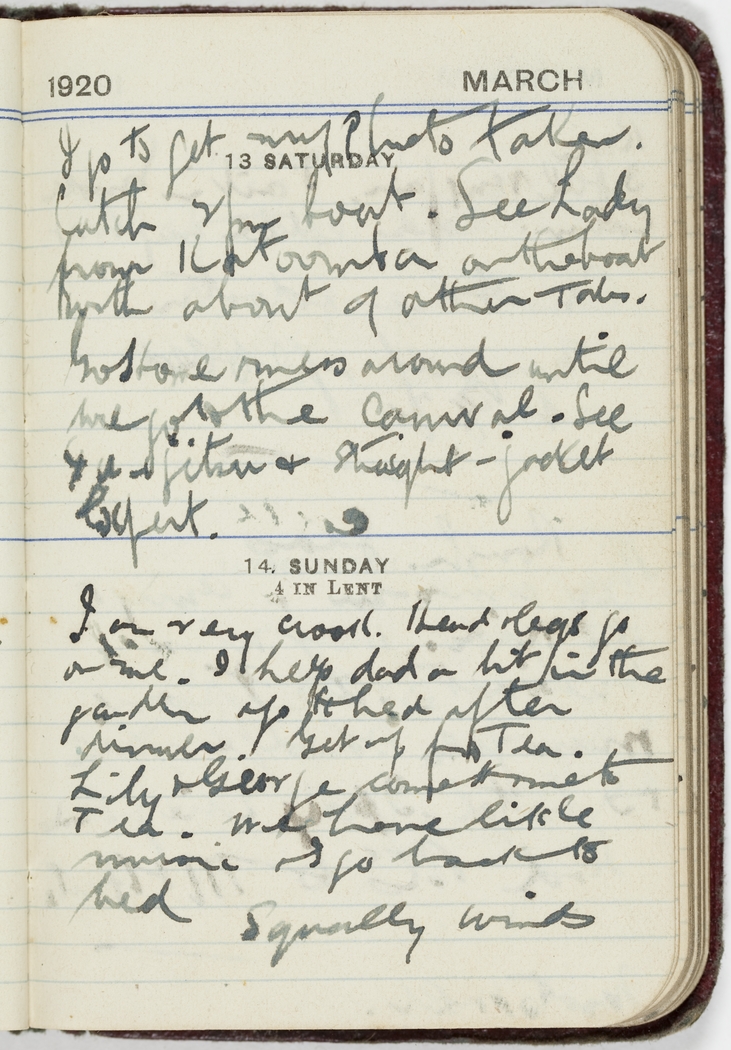 1920 MARCH
I go to get my Photo taken.
13 SATURDAY
Catch 2pm boat. See Lady
from Katoomba on the boat
with about 9 other Tabs.
Go home & mess around until
we go to the Carnival. See
Ju-jitsu & Straight-jacket
Expert.
14. SUNDAY
4 IN LENT
I am very crook. Head & legs go
on me. I help dad a bit in the
garden & go to bed after
dinner. Get up for Tea.
Lily & George come home to
Tea. We have little
music & I go back to
bed
Squally winds